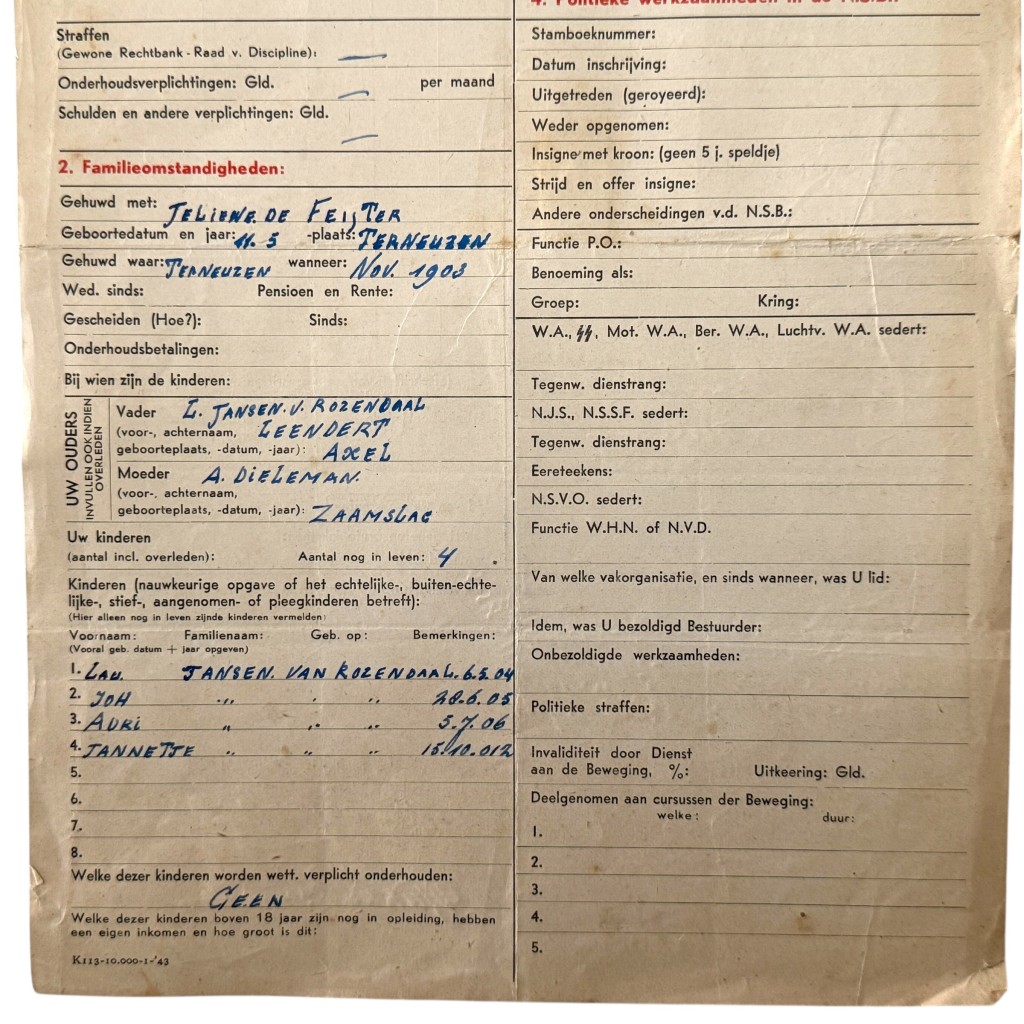 Straffen
(Gewone Rechtbank - Raad v. Discipline): —
Onderhoudsverplichtingen: Gld. — per maand
Schulden en andere verplichtingen: Gld. —
2. Familieomstandigheden:
Gehuwd met: JELIENE DE FEIJTER
Geboortedatum en jaar: 11.5 -plaats: TERNEUZEN
Gehuwd waar: TERNEUZEN wanneer: NOV. 1903
Wed. sinds: Pensioen en Rente:
Gescheiden (Hoe?): Sinds:
Onderhoudsbetalingen:
Bij wien zijn de kinderen:
UW OUDERS
INVULLEN OOK INDIEN
OVERLEDEN
Vader L. JANSEN. V. ROZENDAAL
(voor-, achternaam, LEENDERT
geboorteplaats, -datum, -jaar): AXEL
Moeder A. DIELEMAN.
(voor-. achternaam,
geboorteplaats, -datum, -jaar): ZAAMSLAG
Uw kinderen
(aantal incl. overleden): Aantal nog in leven: 4
Kinderen (nauwkeurige opgave of het echtelijke-, buiten-echte-
lijke-, stief-, aangenomen- of pleegkinderen betreft):
(Hier alleen nog in leven zijnde kinderen vermelden)
Voornaam: Familienaam: Geb. op: Bemerkingen:
(Vooral geb. datum + jaar opgeven)
1. LAU. JANSEN. VAN ROZENDAAL. 6.5.04
2. JOH ,, , ,, 28.6.05
3. ADRI ,, ,, ,, 5.7.06
4. JANNETJE ,, ,, ,, 15.10.012
5.
6.
7.
8.
Welke dezer kinderen worden wett. verplicht onderhouden:
GEEN
Welke dezer kinderen boven 18 jaar zijn nog in opleiding, hebben
een eigen inkomen en hoe groot is dit:
K113-10.000-1-'43
4. Politieke werkzaamheden in de N.S.B.:
Stamboeknummer:
Datum inschrijving:
Uitgetreden (geroyeerd):
Weder opgenomen:
Insigne met kroon: (geen 5 j. speldje)
Strijd en offer insigne:
Andere onderscheidingen v.d. N.S.B.:
Functie P.O.:
Benoeming als:
Groep: Kring:
W.A., ᛋᛋ, Mot. W.A., Ber. W.A., Luchtv. W.A. sedert:
Tegenw. dienstrang:
N.J.S., N.S.S.F. sedert:
Tegenw. dienstrang:
Eereteekens:
N.S.V.O. sedert:
Functie W.H.N. of N.V.D.
Van welke vakorganisatie, en sinds wanneer, was U lid:
Idem, was U bezoldigd Bestuurder:
Onbezoldigde werkzaamheden:
Politieke straffen:
Invaliditeit door Dienst
aan de Beweging, %: Uitkeering: Gld.
Deelgenomen aan cursussen der Beweging:
welke: duur:
1.
2.
3.
4.
5.